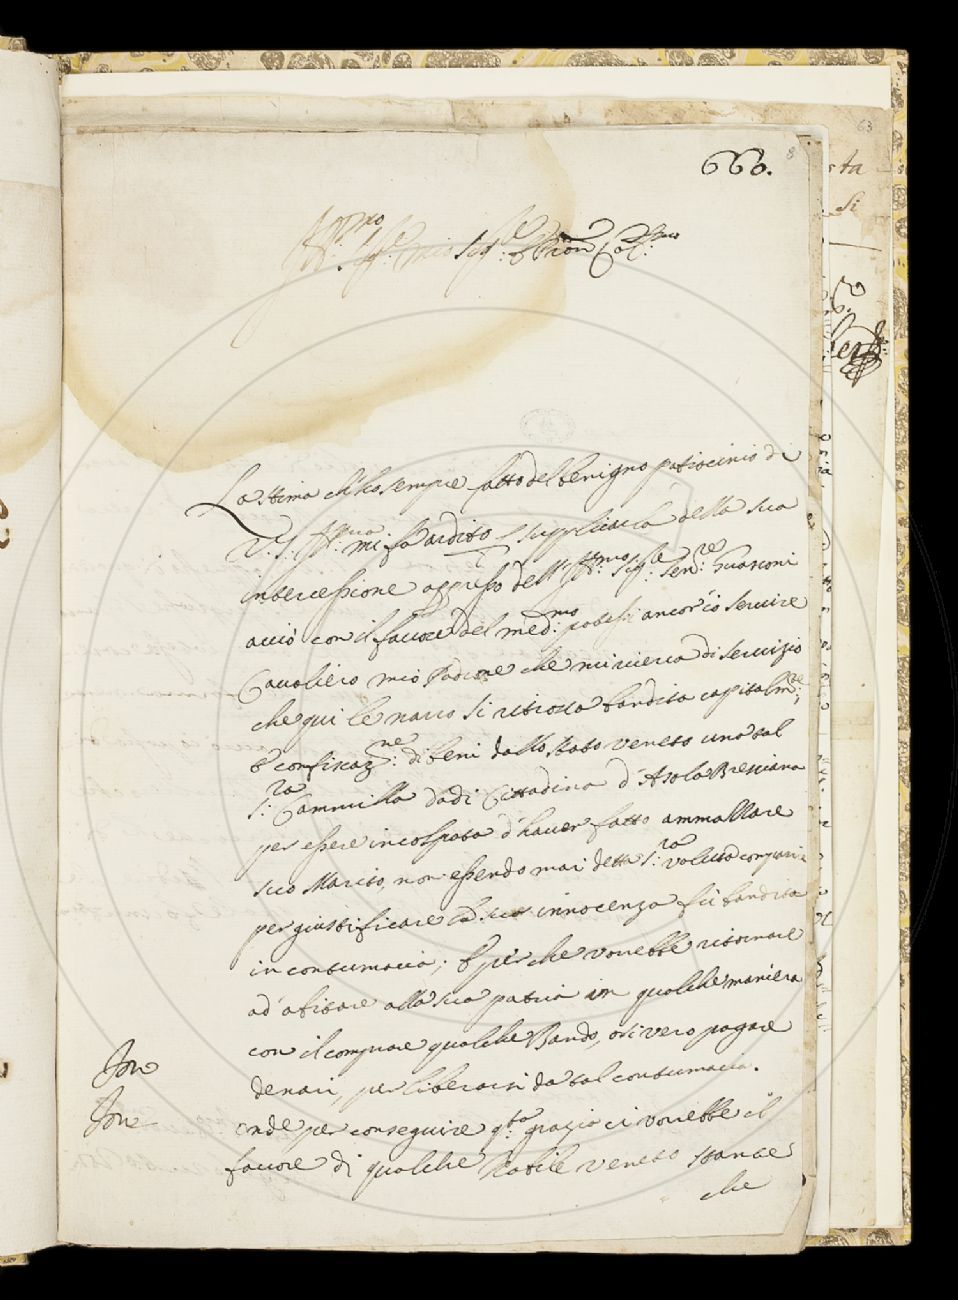 63
8
660.
Ill.mo Sig.re mio Sig.re e Pron Col.mo
La stima ch'ho sempre fatto del benigno patrocinio di
V.S. Ill.ma mi fa ardito supplicarla della sua
intercessione appresso dell' Ill.mo Sig.re Sen.re Guasconi
acciò con il favore del med.mo potessi ancor io servire
Cavaliero mio Padrone che mi ricerca di servizio
che qui le narro si ritrova bandita capitalm.te
e confiscaz.ne di beni dallo stato veneto una tal
S.ra Cammilla Dadi Cittadina d'Asola Bresciana
per essere incolpata d'haver fatto ammazzare
suo Marito, non essendo mai detta S.ra voluto comparire
per giustificare la sua innocenza fù bandita
in contumacia; e perche vorrebbe ritornare
ad abitare alla sua patria in qualche maniera
con il comprare qualche Bando, o si vero pagare
denari, per liberarsi da tal contumacia.
onde per conseguire q.ta grazia ci vorrebbe il
favore di qualche Nobile veneto stante
che